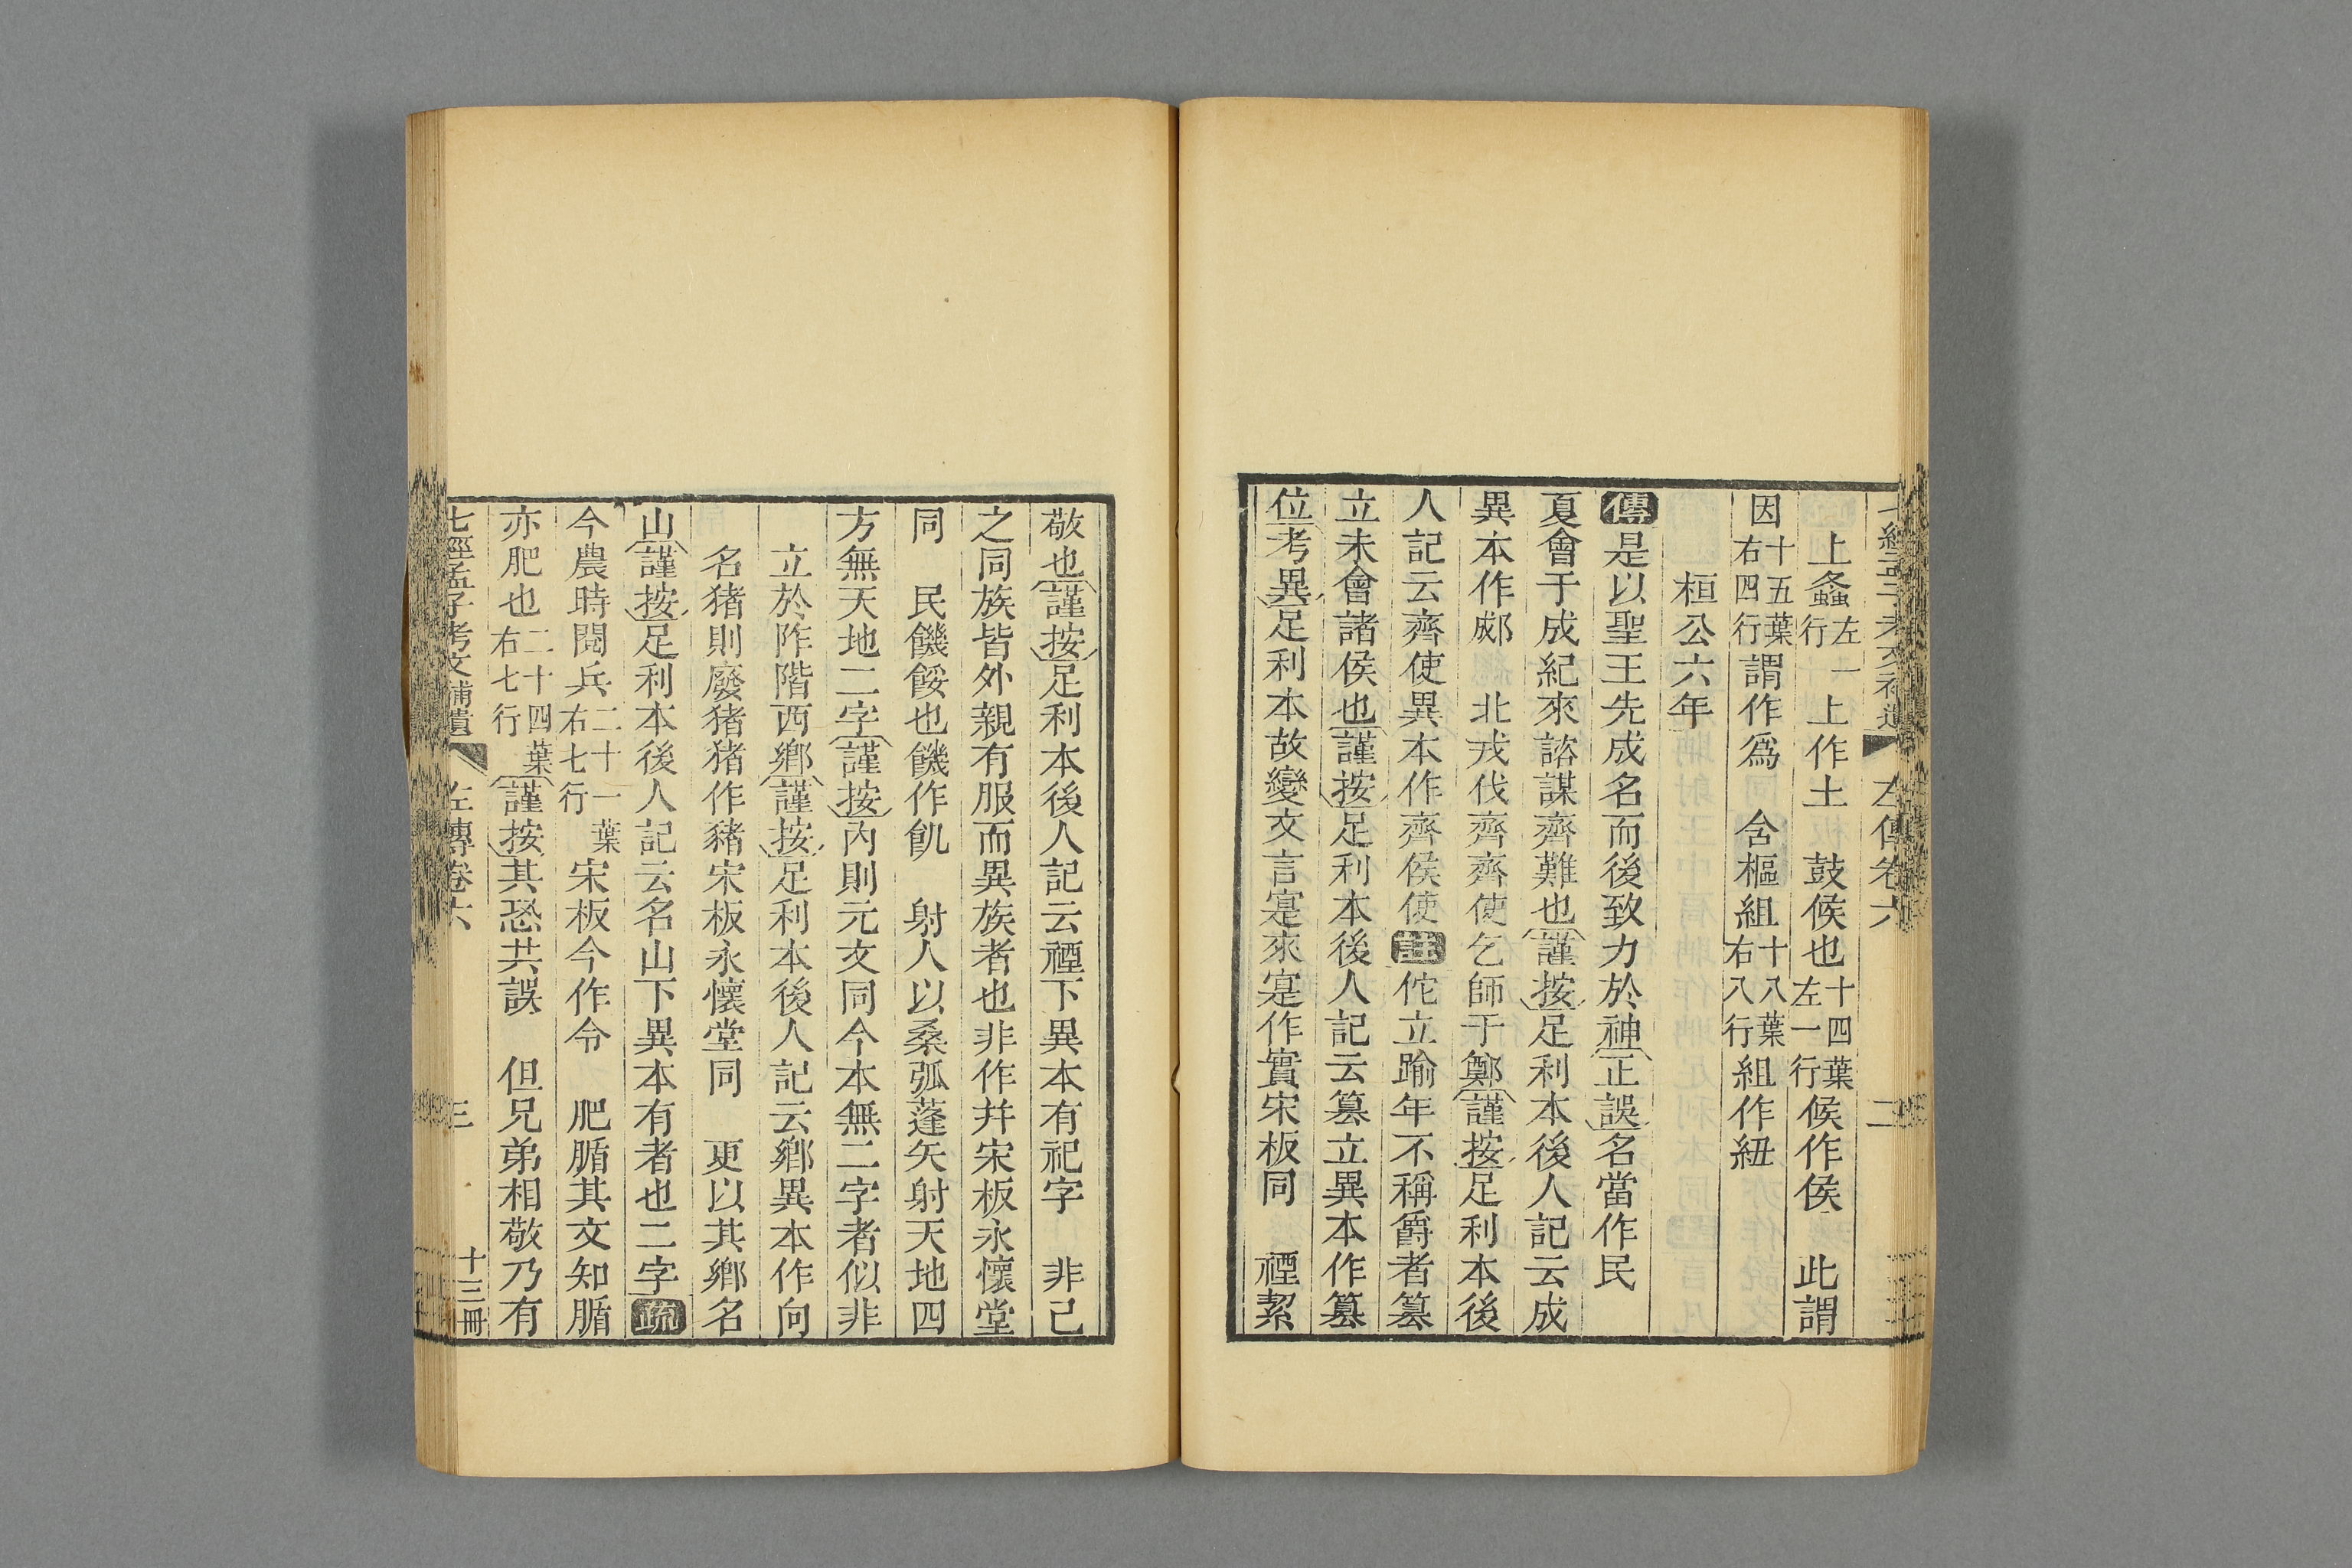 七經孟子考文補遺 左傳卷六 二
上螽左一行 上作土 鼓候也十四葉左一行候作侯 此謂
因十五葉右四行謂作爲 含樞組十八葉右八行組作紐
桓公六年
傳是以聖王先成名而後致力於神正誤名當作民
夏會于成紀來諮謀齊難也謹按足利本後人記云成
異本作郕 北戎伐齊齊使乞師于鄭謹按足利本後
人記云齊使異本作齊侯使註佗立踰年不稱爵者篡
立未會諸侯也謹按足利本後人記云篡立異本作篡
位考異足利本故變文言寔來寔作實宋板同 禋絜
敬也謹按足利本後人記云禋下異本有祀字 非己
之同族皆外親有服而異族者也非作幷宋板永懷堂
同 民饑餒也饑作飢 射人以桑弧蓬矢射天地四
方無天地二字謹按內則元文同今本無二字者似非
立於阼階西鄉謹按足利本後人記云鄉異本作向
名猪則廢猪猪作豬宋板永懷堂同 更以其鄉名
山謹按足利本後人記云名山下異本有者也二字疏
今農時閱兵二十一葉右七行宋板今作令 肥腯其文知腯
亦肥也二十四葉右七行謹按其恐共誤 但兄弟相敬乃有
七經孟子考文補遺 左傳卷六 三 十三冊